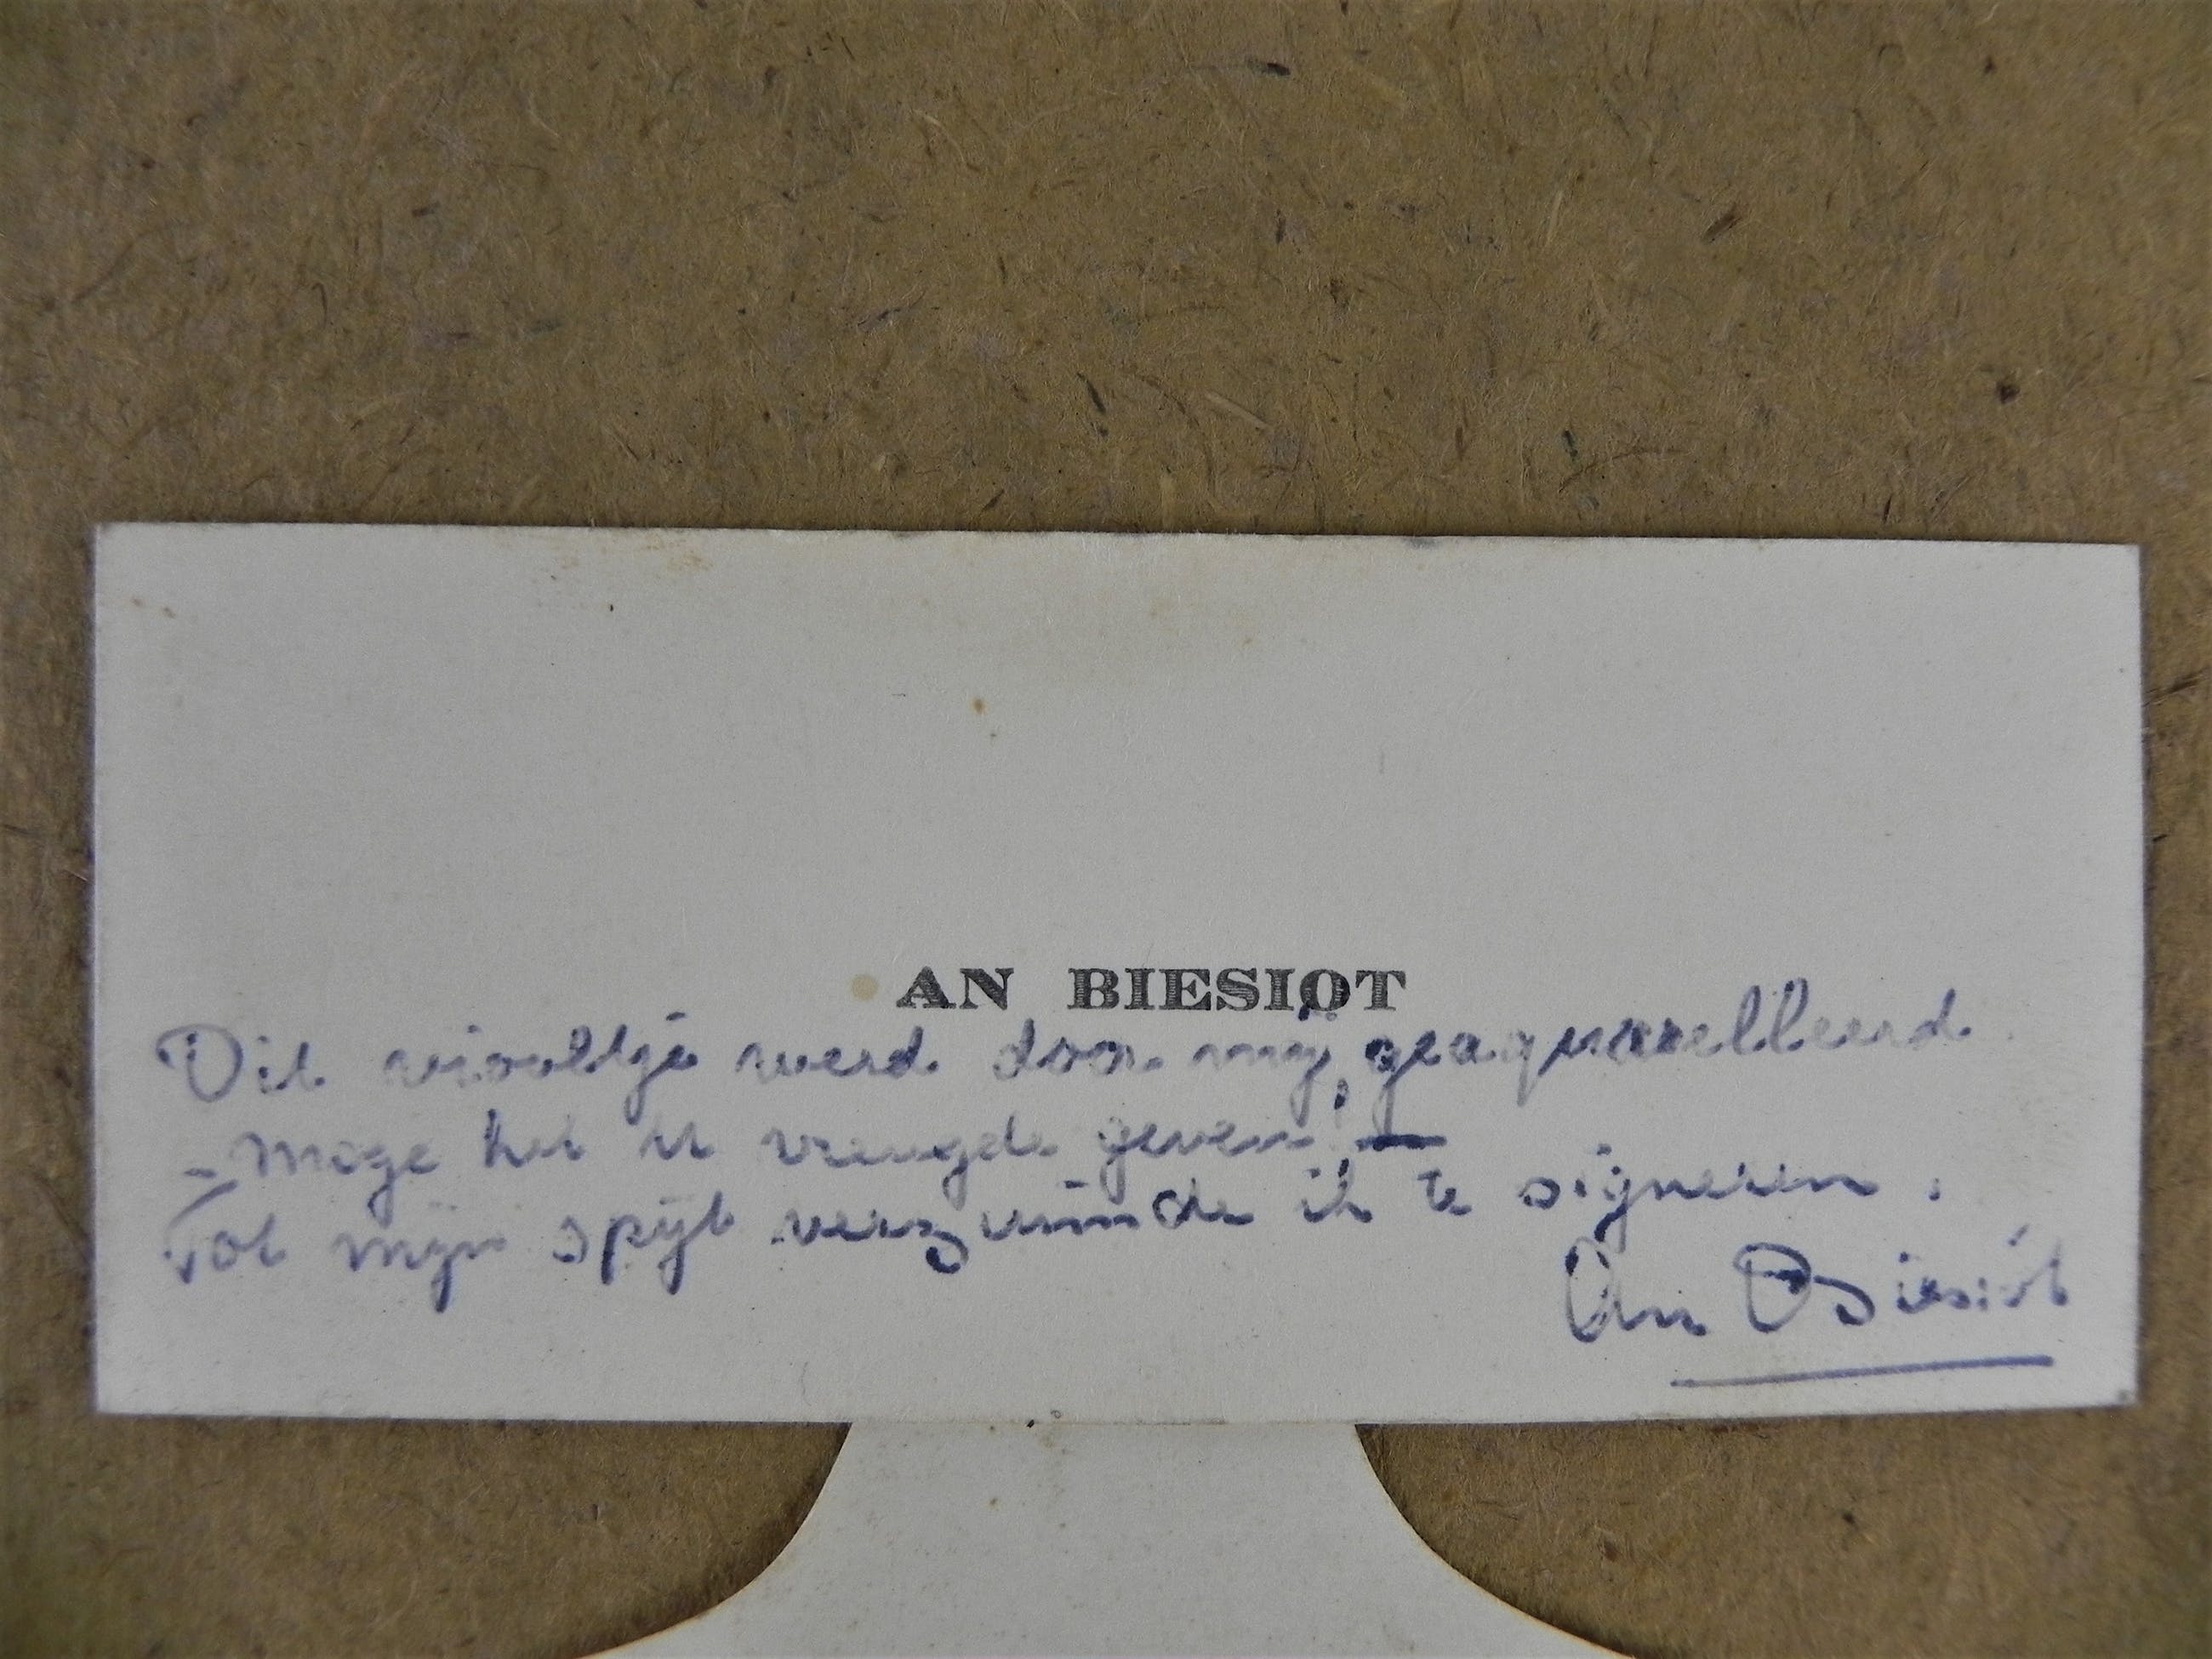 AN BIESIOT
Dit viooltje werd door mij geaquarelleerd.
- Moge het u vreugde geven! -
Tot mijn spijt verzuimde ik te signeren.
An Biesiót